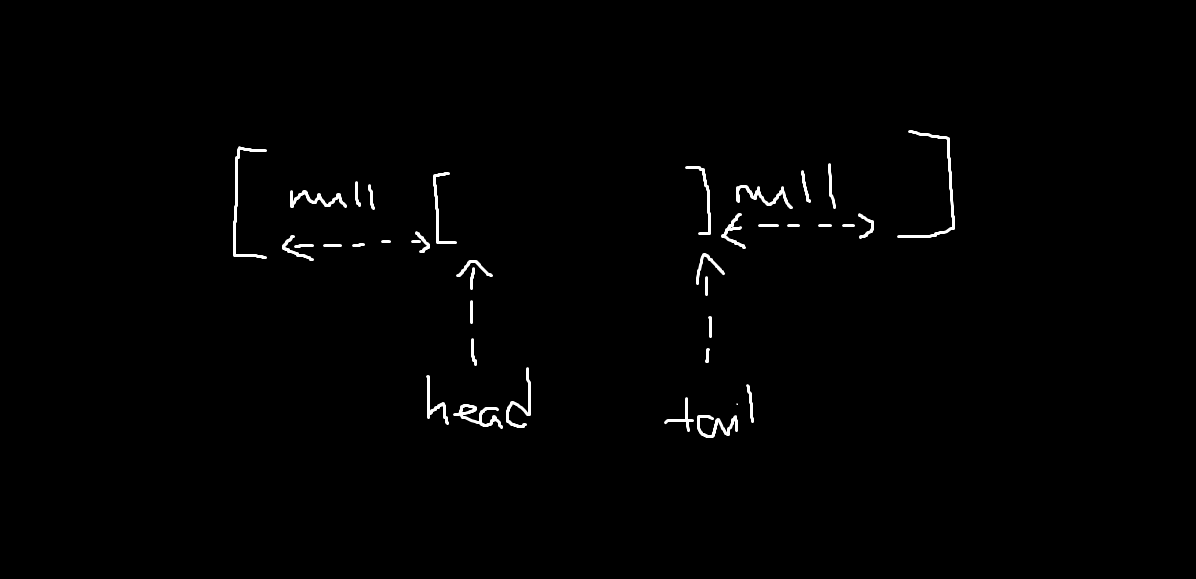 null null
head tail